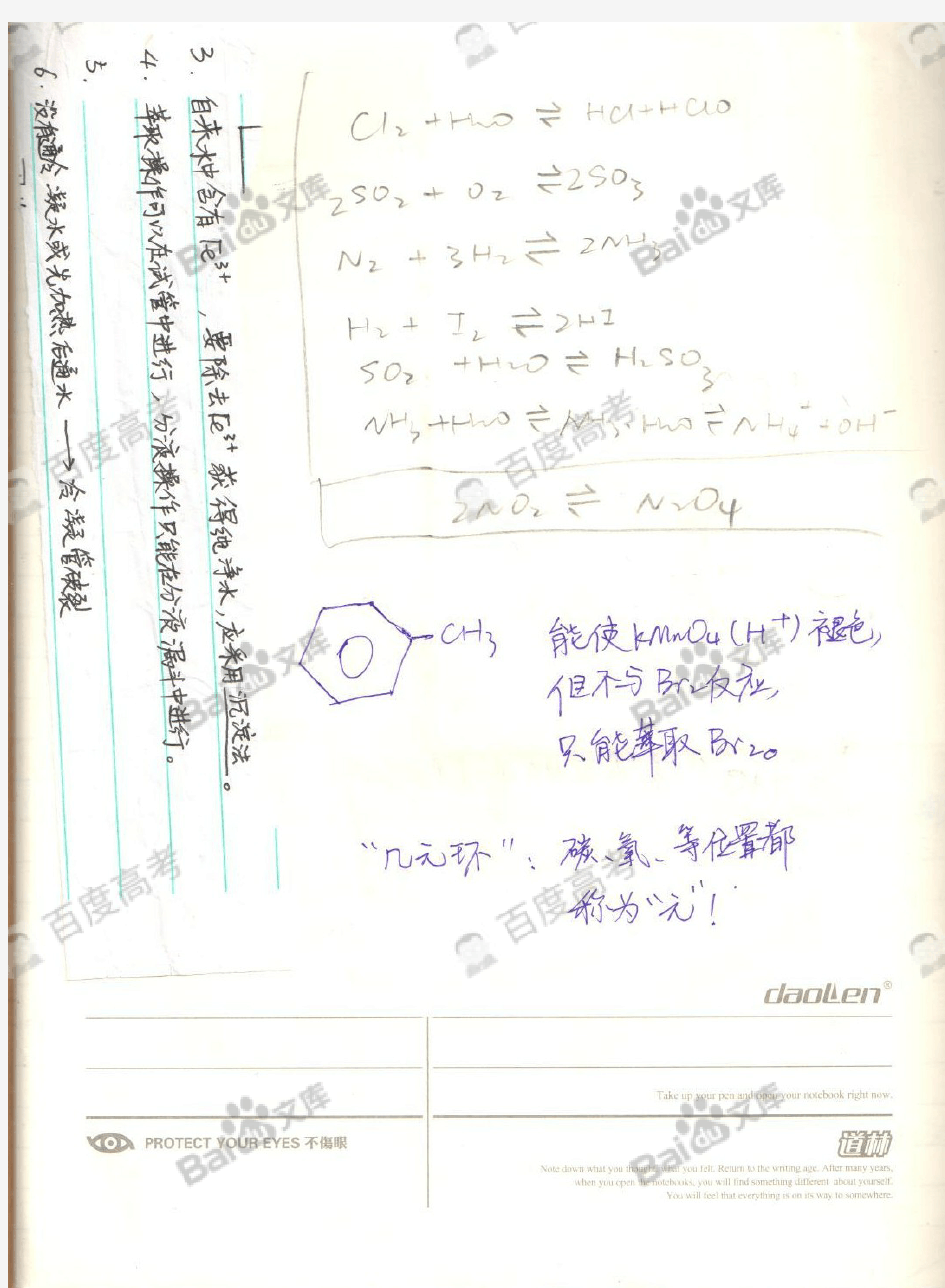 3. 自来水中含有Fe³⁺,要除去Fe³⁺获得纯净水,应采用沉淀法。
4. 萃取操作可以在试管中进行,分液操作只能在分液漏斗中进行。
5.
6. 没有通冷凝水或先加热后通水→冷凝管破裂
Cl₂+H₂O⇌HCl+HClO
2SO₂+O₂⇌2SO₃
N₂+3H₂⇌2NH₃
H₂+I₂⇌2HI
SO₂+H₂O⇌H₂SO₃
NH₃+H₂O⇌NH₃·H₂O⇌NH₄⁺+OH⁻
2NO₂⇌N₂O₄
CH₃
能使KMnO₄(H⁺)褪色,
但不与Br₂反应,
只能萃取Br₂。
“几元环”:碳、氧、等位置都
称为“元”!
daolen®
Take up your pen and open your notebook right now.
PROTECT YOUR EYES 不傷眼
道林
Note down what you thought, what you felt. Return to the writing age. After many years,
when you open the notebooks, you will find something different about yourself.
You will feel that everything is on its way to somewhere.
Baidu文库
百度高考